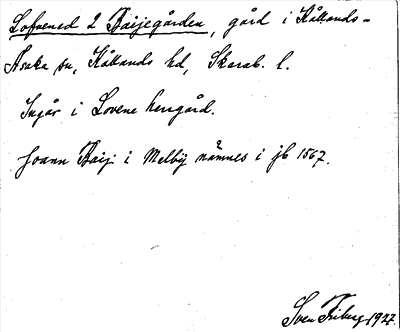 Lofvened 2 Baijegården, gård i Kållands-
Åsaka sn, Kållands hd, Skarab. l.
Ingår i Lovene herrgård.
Joann Baij i Melby nämnes i jb 1567.
Sven Friberg 1927.